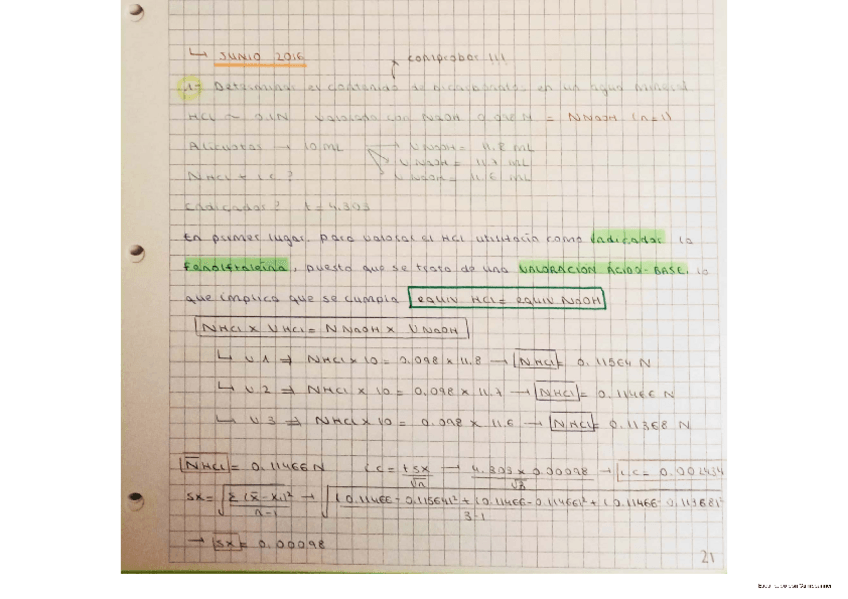 ↳ JUNIO 2016
* comprobar !!!
1- Determinar el contenido de bicarbonatos en un agua mineral
HCl ~ 0.1N valorada con NaOH 0.098 N = NNaOH (n=1)
Alicuotas → 10 mL → VNaOH = 11.8 mL
VNaOH = 11.7 mL
NHCl + i.c? VNaOH = 11.6 mL
Indicador? t = 4.303
En primer lugar, para valorar el HCl utilizaría como indicador la
Fenolftaleína, puesto que se trata de una VALORACIÓN ÁCIDO-BASE, lo
que implica que se cumpla equiv HCl = equiv NaOH
NHCl x VHCl = NNaOH x VNaOH
↳ V1 ⇒ NHCl x 10 = 0.098 x 11.8 → NHCl = 0.11564 N
↳ V2 ⇒ NHCl x 10 = 0.098 x 11.7 → NHCl = 0.11466 N
↳ V3 ⇒ NHCl x 10 = 0.098 x 11.6 → NHCl = 0.11368 N
N̅HCl = 0.11466 N i.c = t sx / √n → 4.303 x 0.00098 / √3 → i.c = 0.002434
sx = √ Σ (x̅ - xi)² / n-1 → √ (0.11466 - 0.11564)² + (0.11466 - 0.11466)² + (0.11466 - 0.11368)² / 3-1
→ sx = 0.00098
21
Escaneado con CamScanner